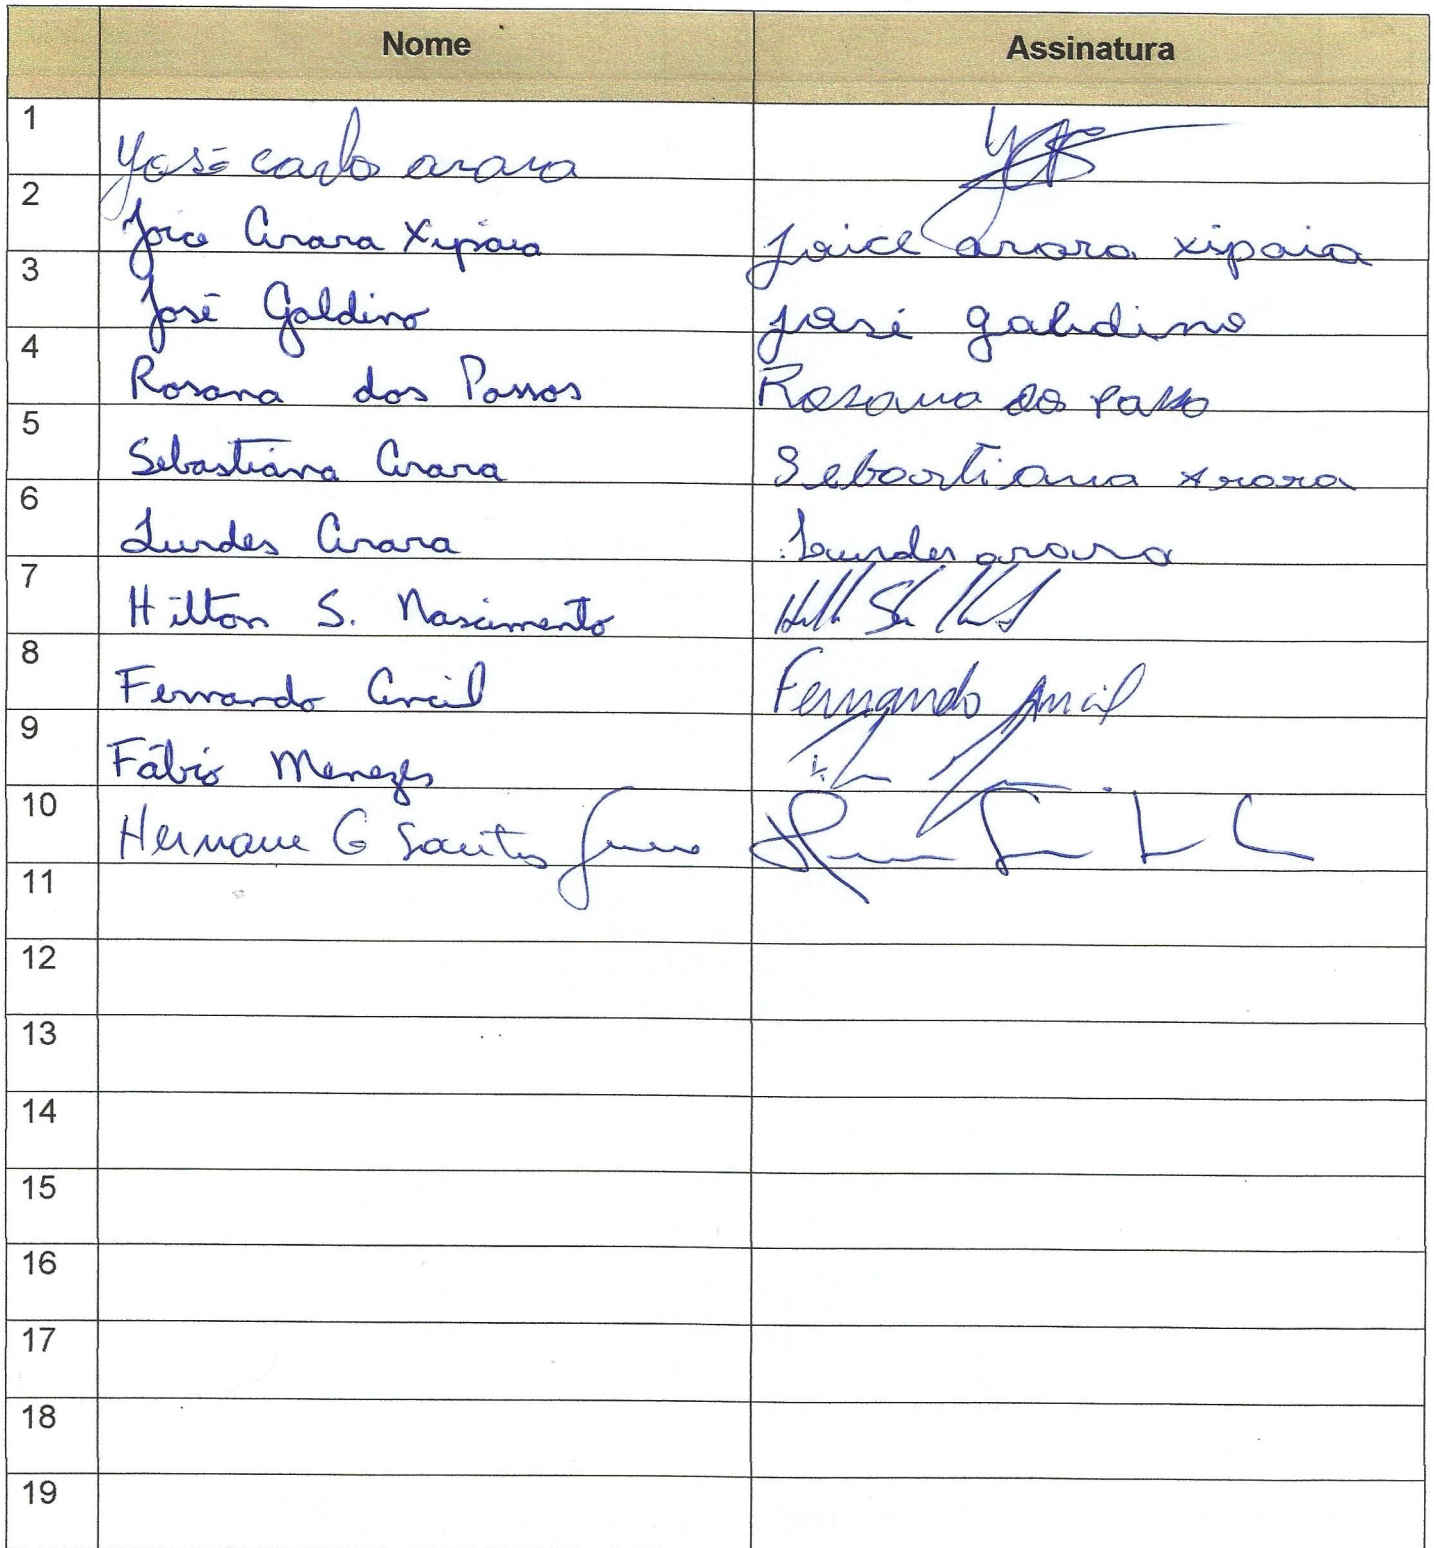 Nome Assinatura
1 Yosé carlo arara
2 Joice Arara Xipaia joice arara xipaia
3 José Galdino josé galidino
4 Rosana dos Passos Rosana do Passo
5 Sebastiana Arara Sebastiana Arara
6 Lurdes Arara Lourdes arara
7 Hilton S. Nascimento
8 Fernando Ancil Fernando Ancil
9 Fábio Menezes
10 Hernane G Santos
11
12
13
14
15
16
17
18
19